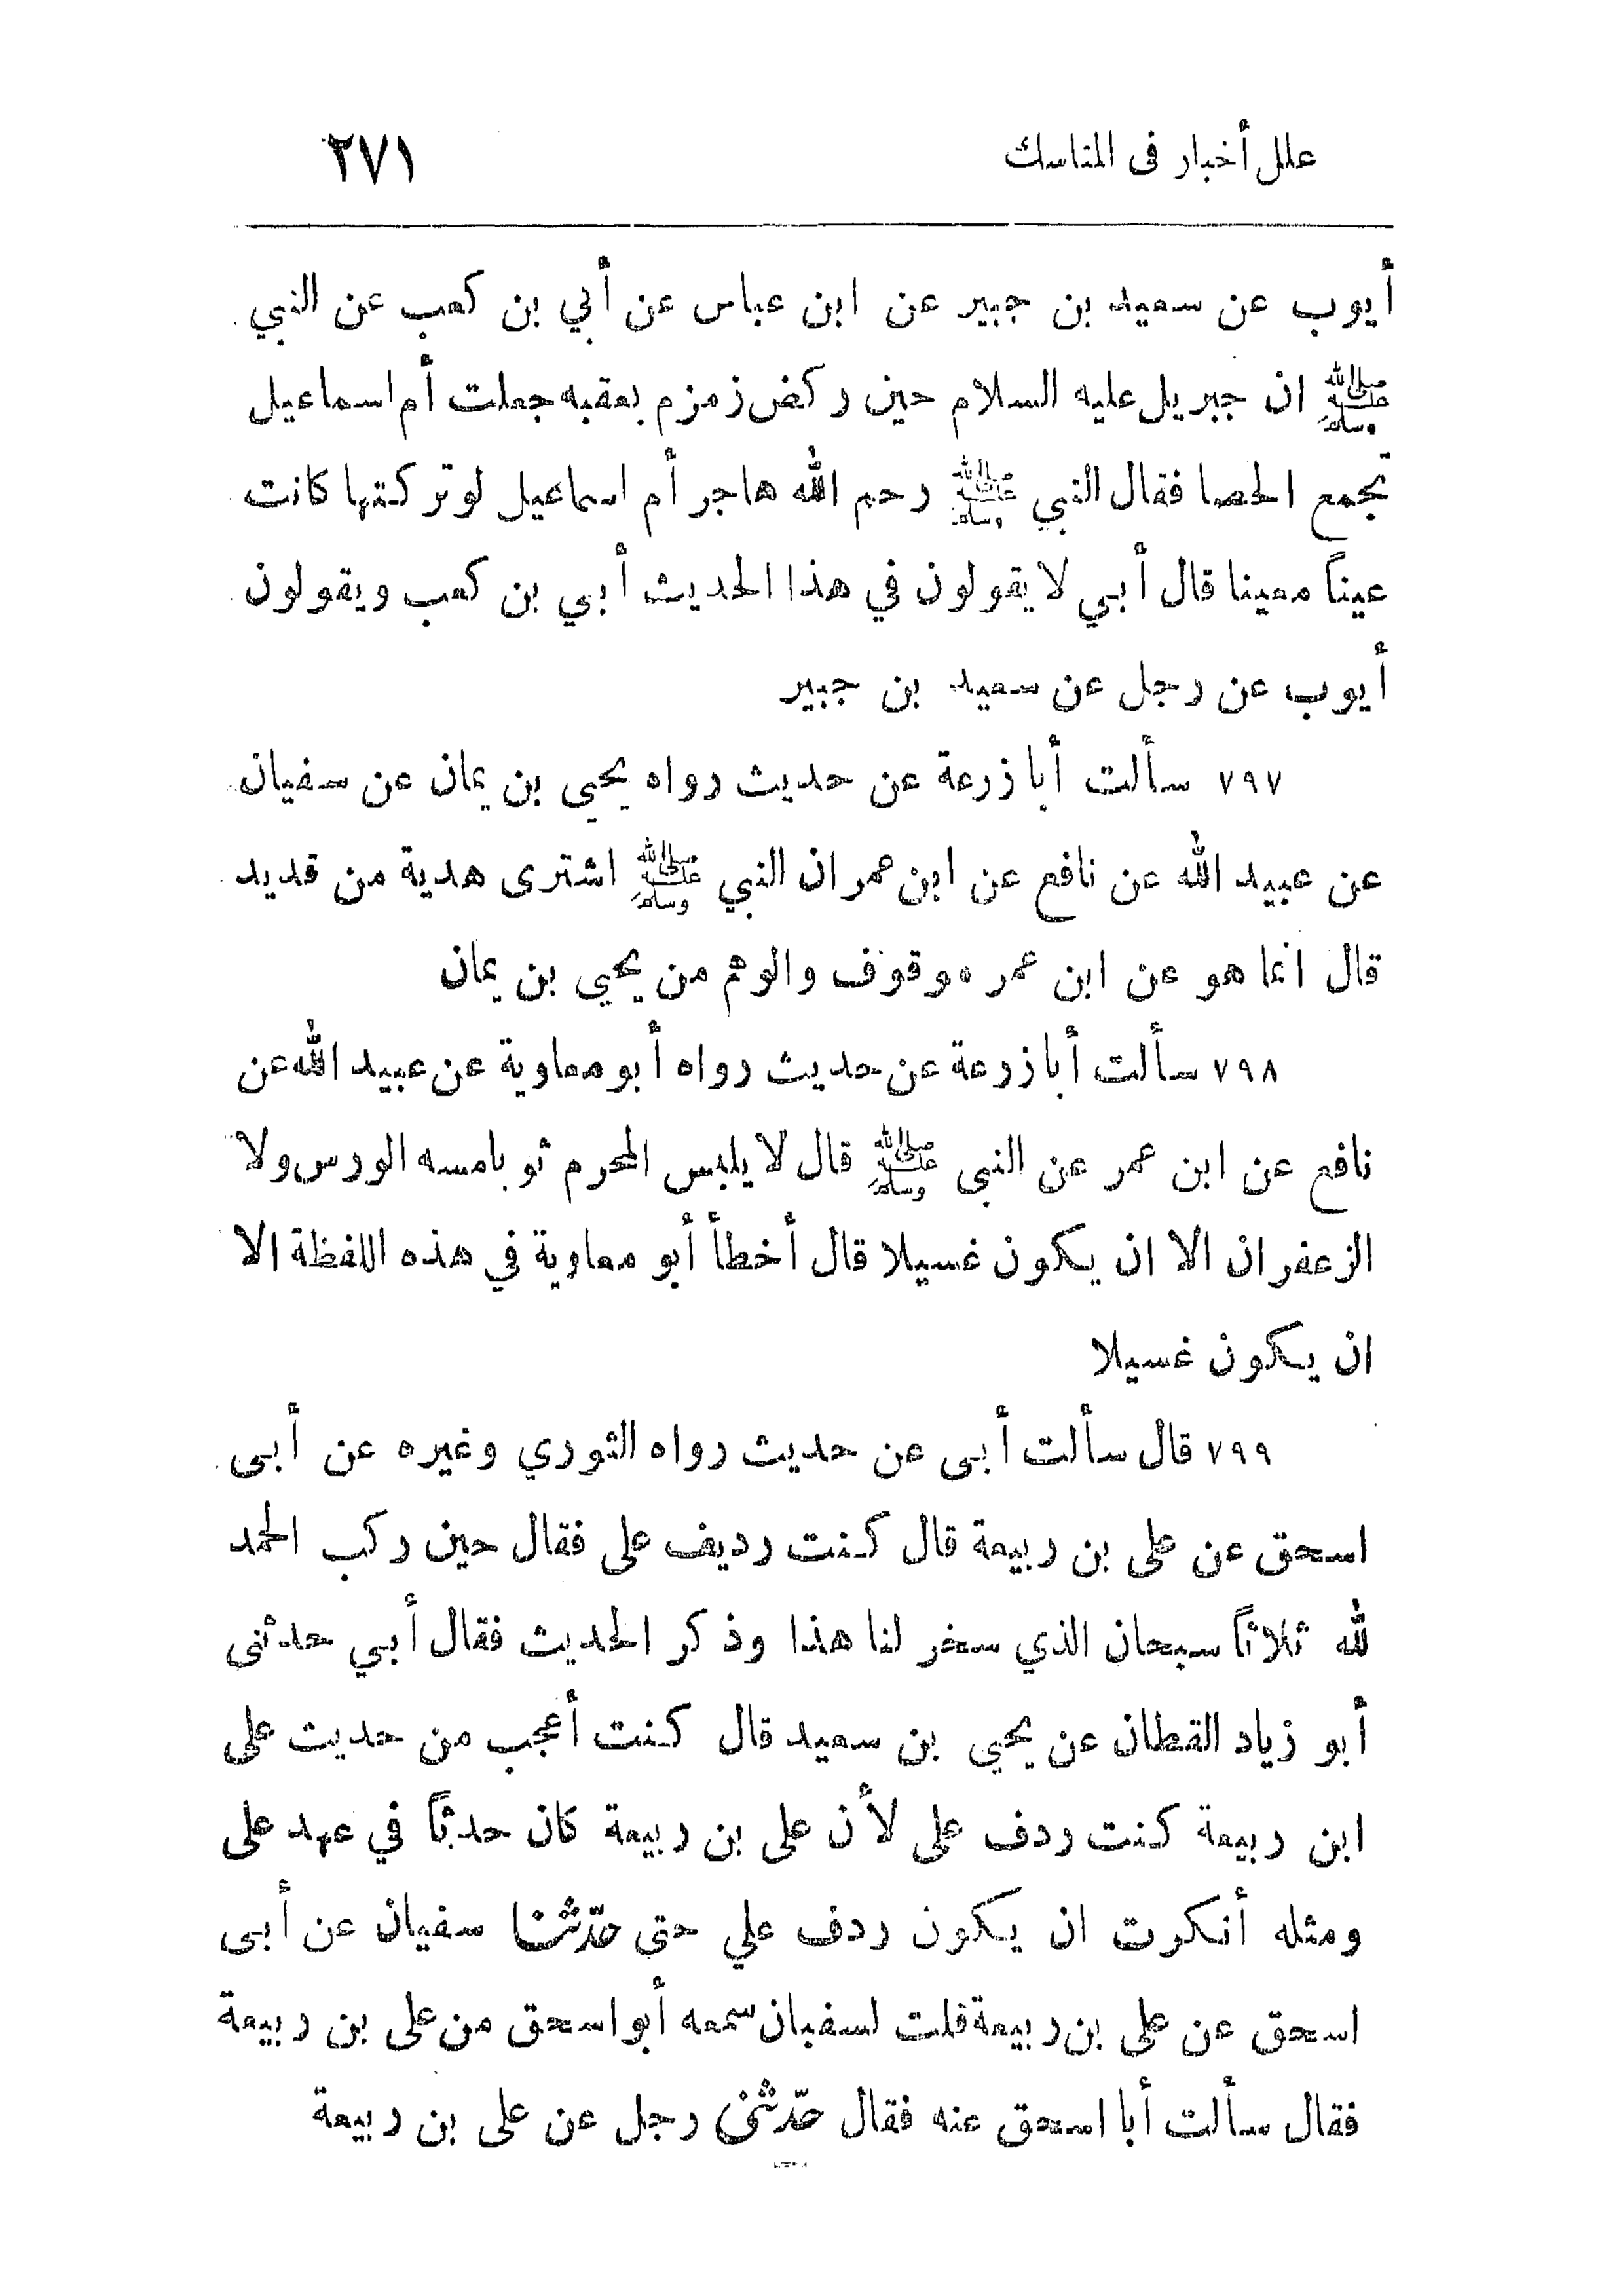 علل أخبار فى المناسك ٢٧١
أيوب عن سعيد بن جبير عن ابن عباس عن أبي بن كعب عن النبي
ﷺ ان جبريل عليه السلام حين ركض زمزم بعقبه جعلت أم اسماعيل
تجمع الحصا فقال النبي ﷺ رحم الله هاجر أم اسماعيل لو تركتها كانت
عيناً معينا قال أبي لا يقولون في هذا الحديث أبي بن كعب ويقولون
أيوب عن رجل عن سعيد بن جبير
٧٩٧ سألت أبا زرعة عن حديث رواه يحيى بن يمان عن سفيان
عن عبيد الله عن نافع عن ابن عمر ان النبي ﷺ اشترى هدية من قديد
قال انما هو عن ابن عمر موقوف والوهم من يحيي بن يمان
٧٩٨ سألت أبا زرعة عن حديث رواه أبو معاوية عن عبيد الله عن
نافع عن ابن عمر عن النبى ﷺ قال لا يلبس المحرم ثوبا مسه الورس ولا
الزعفران الا ان يكون غسيلا قال أخطأ أبو معاوية في هذه اللفظة الا
ان يكون غسيلا
٧٩٩ قال سألت أبى عن حديث رواه الثوري وغيره عن أبى
اسحق عن على بن ربيعة قال كنت رديف على فقال حين ركب الحمد
لله ثلاثاً سبحان الذي سخر لنا هذا وذكر الحديث فقال أبي حدثنى
أبو زياد القطان عن يحيي بن سعيد قال كنت أعجب من حديث على
ابن ربيعة كنت ردف على لأن على بن ربيعة كان حدثاً في عهد على
ومثله أنكرت ان يكون ردف علي حتى حدّثنا سفيان عن أبى
اسحق عن على بن ربيعة قلت لسفيان سمعه أبو اسحق من على بن ربيعة
فقال سألت أبا اسحق عنه فقال حدّثنى رجل عن على بن ربيعة